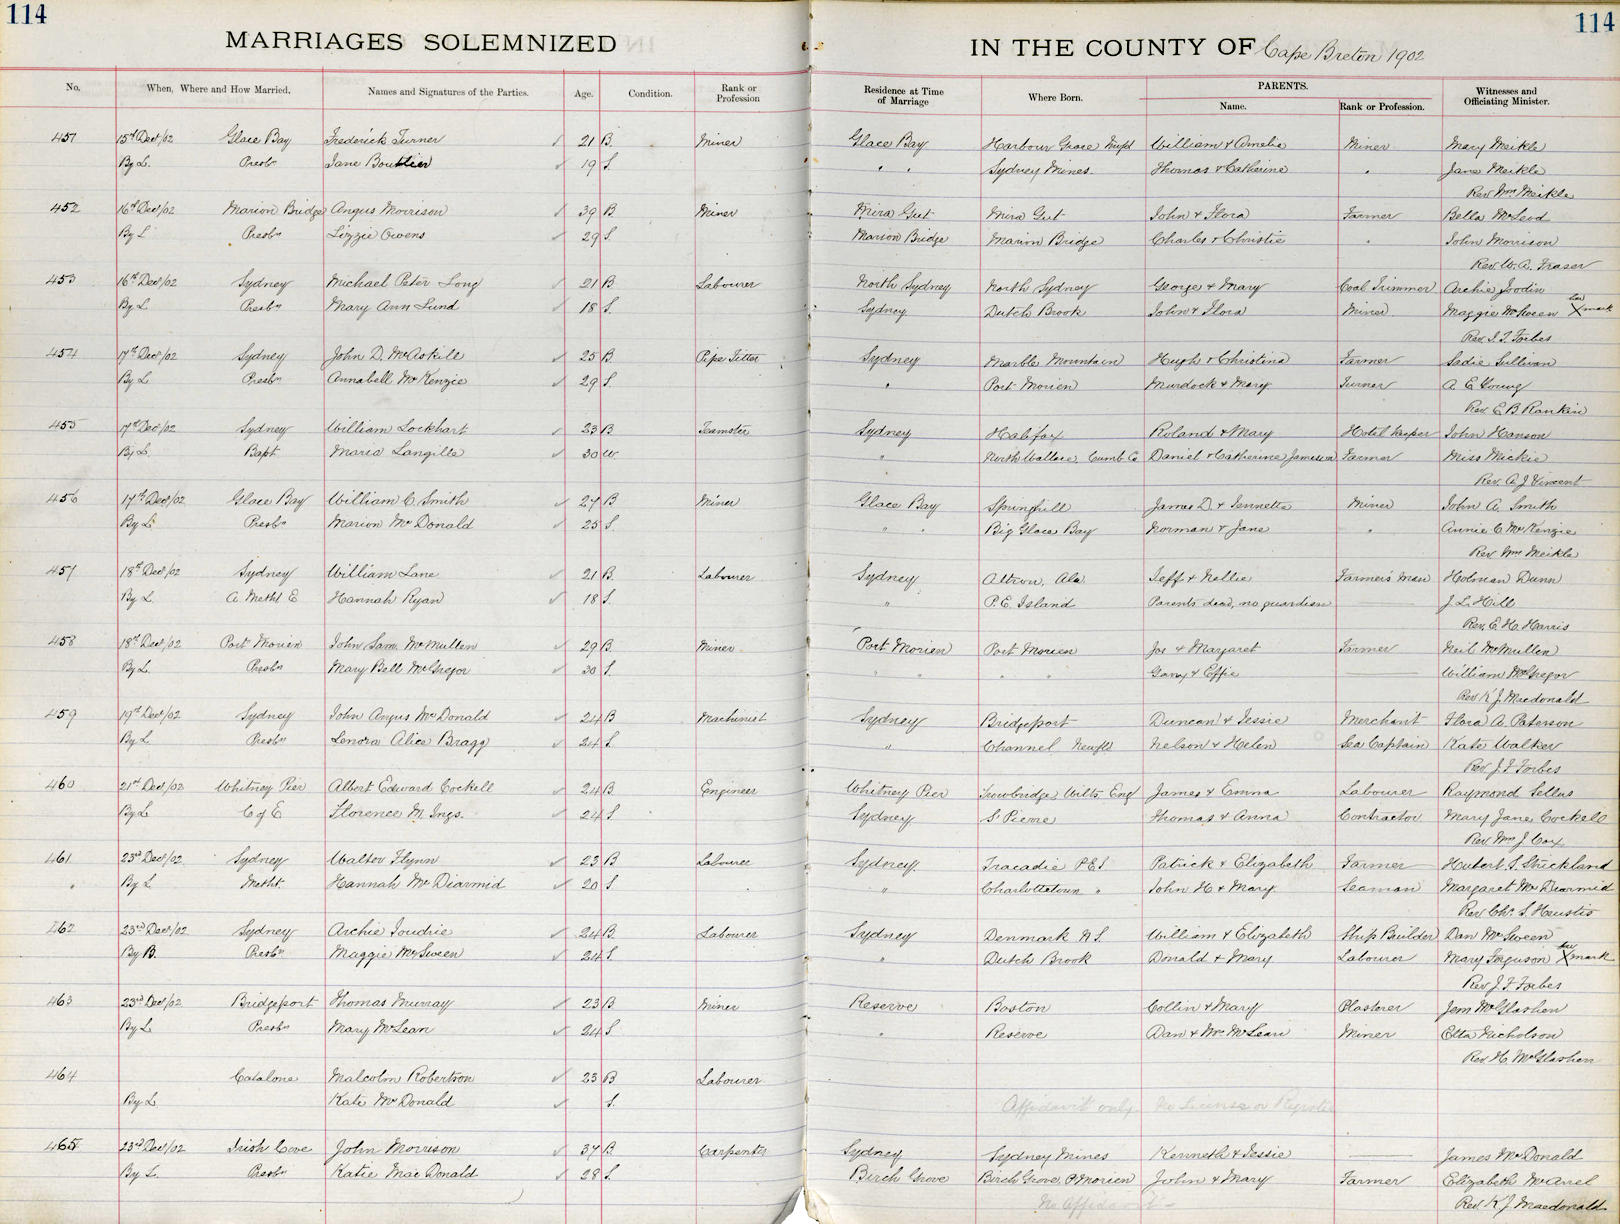 114
114
MARRIAGES SOLEMNIZED
IN THE COUNTY OF Cape Breton 1902
No. When, Where and How Married. Names and Signatures of the Parties. Age. Condition. Rank or Profession Residence at Time of Marriage Where Born. PARENTS. Name. Rank or Profession. Witnesses and Officiating Minister.
451 15th Decr/02 Glace Bay Frederick Turner 21 B. Miner Glace Bay Harbour Grace Nufld William & Amelia Miner Mary Meikle
By L. Presbn Jane Boutlier 19 S. " " Sydney Mines Thomas & Catherine " Jane Meikle
Rev. Wm Meikle
452 16th Decr/02 Marion Bridge Angus Morrison 39 B. Miner Mira Gut Mira Gut John & Flora Farmer Bella McLeod
By L Presbn Lizzie Owens 29 S. Marion Bridge Marion Bridge Charles & Christie " John Morrison
Rev. W. A. Fraser
453 16th Decr/02 Sydney Michael Peter Long 21 B Labourer North Sydney North Sydney George & Mary Coal Trimmer Archie Joodin
By L Presbn Mary Ann Lund 18 S. Sydney Dutch Brook John & Flora Miner Maggie McKeen her X mark
Rev. J. F. Forbes
454 17th Decr/02 Sydney John D. McAskill 25 B Pipe Fitter Sydney Marble Mountain Hugh & Christina Farmer Sadie Sullivan
By L Presbn Annabell McKenzie 29 S. " Port Morien Murdock & Mary Turner A. E. Young
Rev. E. B. Rankin
455 17th Decr/02 Sydney William Lockhart 23 B Teamster Sydney Halifax Roland & Mary Hotel keeper John Hanson
By L. Bapt Maria Langille 30 W " North Wallace, Cumb Co Daniel & Catherine Jameson Farmer Miss Mickie
Rev. A. J. Vincent
456 17th Decr/02 Glace Bay William C. Smith 27 B Miner Glace Bay Springhill James D. & Jennette Miner John A. Smith
By L. Presbn Marion McDonald 25 S. " " Big Glace Bay Norman & Jane " Annie C. McKenzie
Rev. Wm Meikle
457 18th Decr/02 Sydney William Lane 21 B. Labourer Sydney Altron, Ala. Jeff & Nellie Farmer's man Holman Dunn
By L A. Metht E Hannah Ryan 18 S. " P.E. Island Parents dead, no guardian J. L. Hill
Rev. E. H. Harris
458 18th Decr/02 Port Morien John Sam. McMullen 29 B Miner Port Morien Port Morien Joe & Margaret Farmer Neil McMullen
By L. Presbn Mary Bell McGregor 30 S. " " " " & Effie William McGregor
Rev. K. J. Macdonald
459 19th Decr/02 Sydney John Angus McDonald 24 B Machinist Sydney Bridgeport Duncan & Jessie Merchant Flora A. Paterson
By L Presbn Lenora Alice Bragg 24 S. " Channel Neufld Nelson & Helen Sea Captain Kate Walker
Rev. J. F. Forbes
460 21st Decr/02 Whitney Pier Albert Edward Cockell 24 B Engineer Whitney Pier Trowbridge, Wilts. Eng James & Emma Labourer Raymond Sellus
By L C of E Florence M. Ings. 24 S Sydney St Pierre Thomas & Anna Contractor Mary Jane Cockell
Rev. Wm J. Cox
461 23rd Decr/02 Sydney Walter Flynn 23 B Labourer Sydney Tracadie P.E.I. Patrick & Elizabeth Farmer Hubert S. Strickland
" By L Metht. Hannah McDiarmid 20 S. " Charlottetown " John H & Mary Seaman Margaret McDiarmid
Rev. Chs. S. Heustis
462 23rd Decr/02 Sydney Archie Joudrie 24 B. Labourer Sydney Denmark N.S. William & Elizabeth Ship Builder Dan McSween
By B. Presbn Maggie McSween 24 S. " Dutch Brook Donald & Mary Labourer Mary Ferguson her X mark
Rev. J. F. Forbes
463 23rd Decr/02 Bridgeport Thomas Murray 23 B Miner Reserve Boston Collin & Mary Plasterer Jem McGlashen
By L Presbn Mary McLean 24 S. " Reserve Dan & Mrs McLean Miner Etta Nicholson
Rev. H. McGlashen
464 Catalone Malcolm Robertson 23 B Labourer
By L Kate McDonald S. Affidavit only no License or Register
465 23rd Decr/02 Irish Cove John Morrison 37 B. Carpenter Sydney Sydney Mines Kenneth & Jessie James McDonald
By L. Presbn Katie MacDonald 28 S. Birch Grove Birch Grove, P Morien John & Mary Farmer Elizabeth McAnel
No Affidavit Rev. K. J. Macdonald